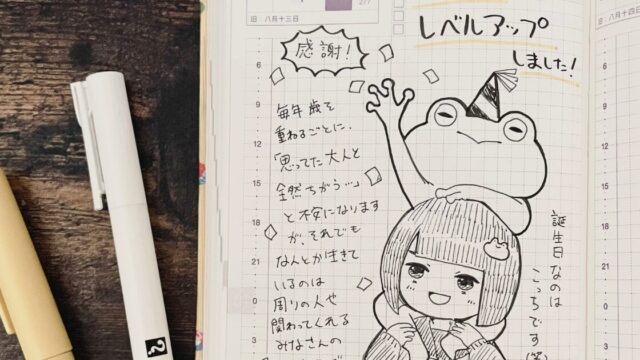 旧:八月十三日
277
旧:八月十四日
レベルアップ
しました!
感謝!
毎年歳を
重ねるごとに、
「思ってた大人と
全然ちがう…」
と不安になります
が、それでも
なんとか生きて
いるのは
周りの人や
関わってくれる
みなさんの
誕生日なのは
こっちです
6
9
12
15
18
21
0
6
9
12
15
18
21
?